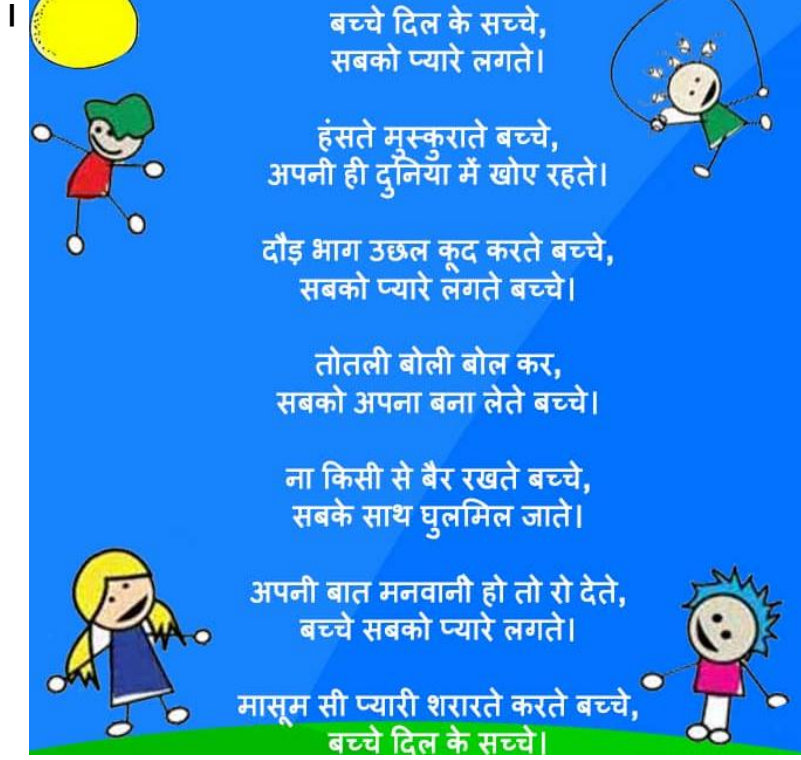 ।
बच्चे दिल के सच्चे,
सबको प्यारे लगते।
हंसते मुस्कुराते बच्चे,
अपनी ही दुनिया में खोए रहते।
दौड़ भाग उछल कूद करते बच्चे,
सबको प्यारे लगते बच्चे।
तोतली बोली बोल कर,
सबको अपना बना लेते बच्चे।
ना किसी से बैर रखते बच्चे,
सबके साथ घुलमिल जाते।
अपनी बात मनवानी हो तो रो देते,
बच्चे सबको प्यारे लगते।
मासूम सी प्यारी शरारते करते बच्चे,
बच्चे दिल के सच्चे।